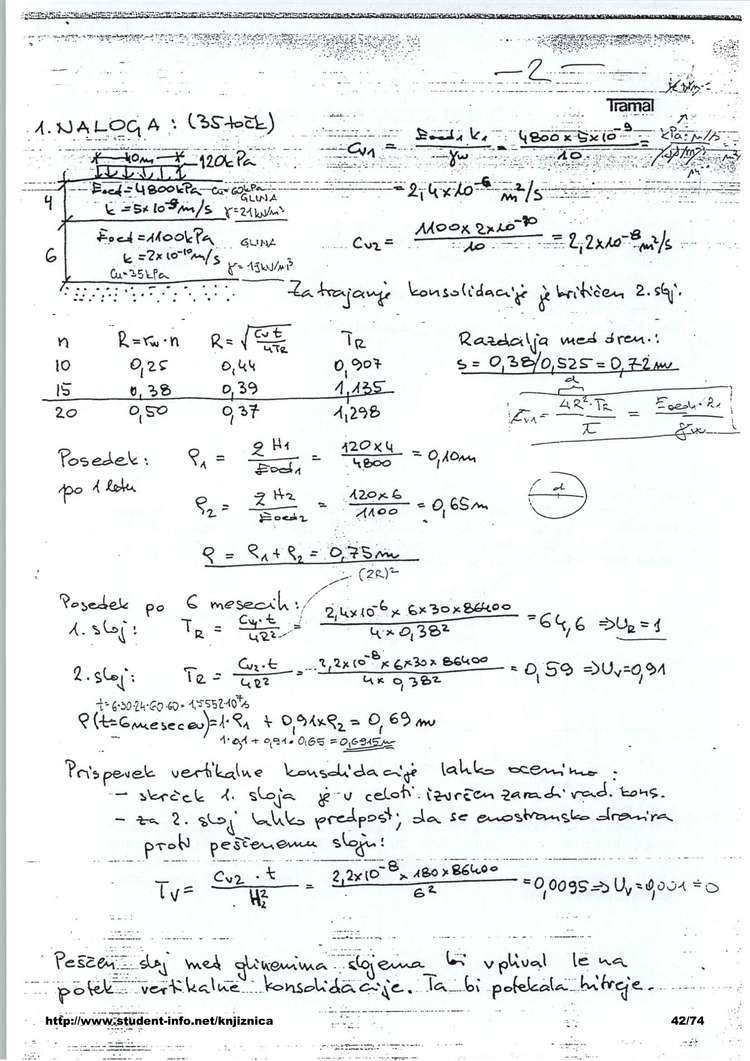 - 2 -
Tramal
1. NALOGA : (35 točk)
Cv1 = Eoed1 k1 / γw = 4800 x 5x10⁻⁹ / 10 =
= 2,4x10⁻⁶ m²/s
40m 120kPa
4 Eoed=4800kPa Cu=60kPa
GLINA
k=5x10⁻⁹m/s γ=21kN/m³
6 Eoed=1100kPa GLINA
k=2x10⁻¹⁰m/s γ=19kN/m³
Cu=35kPa
Cv2 = 1100x2x10⁻¹⁰ / 10 = 2,2x10⁻⁸ m²/s
Za trajanje konsolidacije je kritičen 2. sloj.
n R=rw·n R=√(Cv t / 4TR) TR
10 0,25 0,44 0,907
15 0,38 0,39 1,135
20 0,50 0,37 1,298
Razdalja med dren.:
s = 0,38/0,525 = 0,72m
Posedek:
po 1 letu
ρ1 = q H1 / Eoed1 = 120x4 / 4800 = 0,10m
ρ2 = q H2 / Eoed2 = 120x6 / 1100 = 0,65m
d
ρ = ρ1 + ρ2 = 0,75m
(2R)²
Posedek po 6 mesecih:
1. sloj: TR = Cv·t / 4R² = 2,4x10⁻⁶ x 6x30x86400 / 4x0,38² = 64,6 ⇒ UR = 1
2. sloj: TR = Cv2·t / 4R² = 2,2x10⁻⁸ x 6x30x86400 / 4x0,38² = 0,59 ⇒ Uv=0,91
t=6·30·24·60·60 = 1,5552·10⁷s
ρ(t=6 mesecev)=1·ρ1 + 0,91xρ2 = 0,69 m
1·0,1 + 0,91·0,65 = 0,6915m
Prispevek vertikalne konsolidacije lahko ocenimo:
- skrček 1. sloja je v celoti izvršen zaradi rad. kons.
- za 2. sloj lahko predpost., da se enostransko drenira
proti peščenemu sloju:
Tv = Cv2 · t / H2² = 2,2x10⁻⁸ x 180x86400 / 6² = 0,0095 ⇒ Uv=0,001 ≐ 0
Peščen sloj med glinenima slojema bi vplival le na
potek vertikalne konsolidacije. Ta bi potekala hitreje.
http://www.student-info.net/knjiznica 42/74